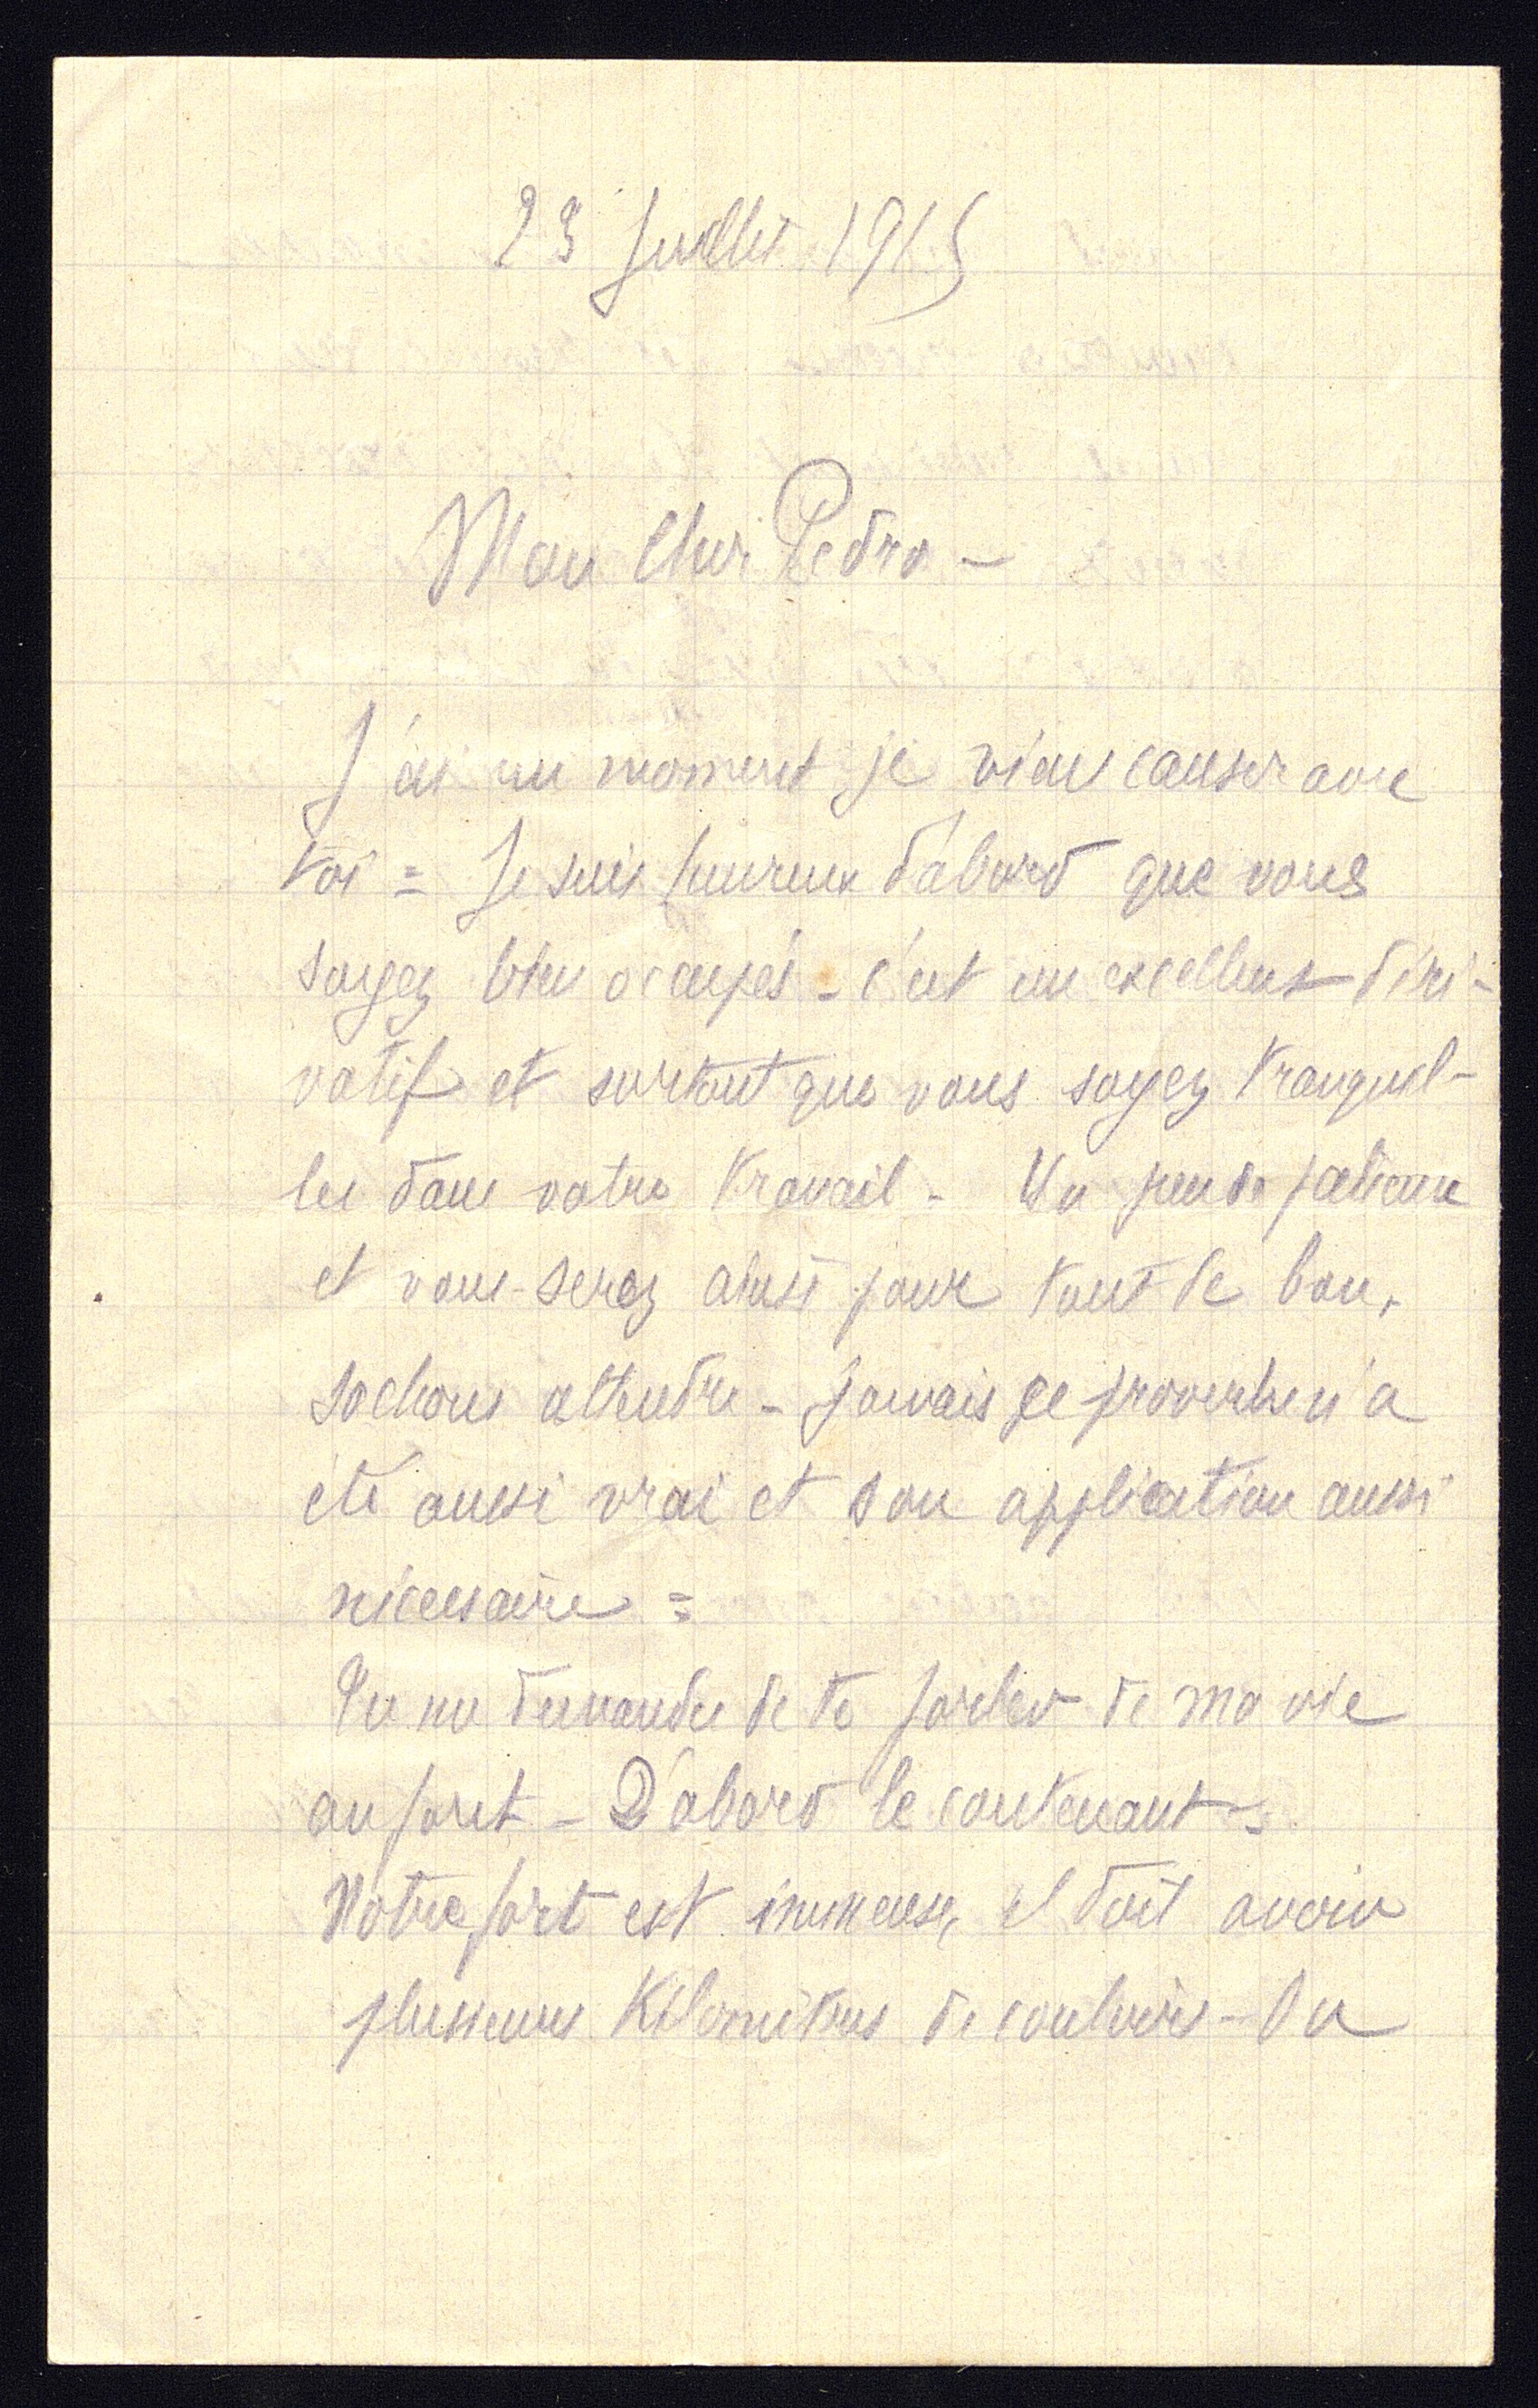 23 Juillet 1915
Mon Cher Pedro -
J'ai un moment je viens causer avec
toi = Je suis heureux d'abord que vous
soyez bien occupés - c'est un excellent déri-
vatif et surtout que vous soyez tranquil-
les dans votre travail - Un peu de patience
et vous serez ainsi pour tout de bon,
sachons attendre - jamais ce proverbe n'a
été aussi vrai et son application aussi
nécessaire =
Tu me demandes de te parler de ma vie
au fort - D'abord le contenant -
Notre fort est immense, il doit avoir
plusieurs Kilomètres de couloirs - On